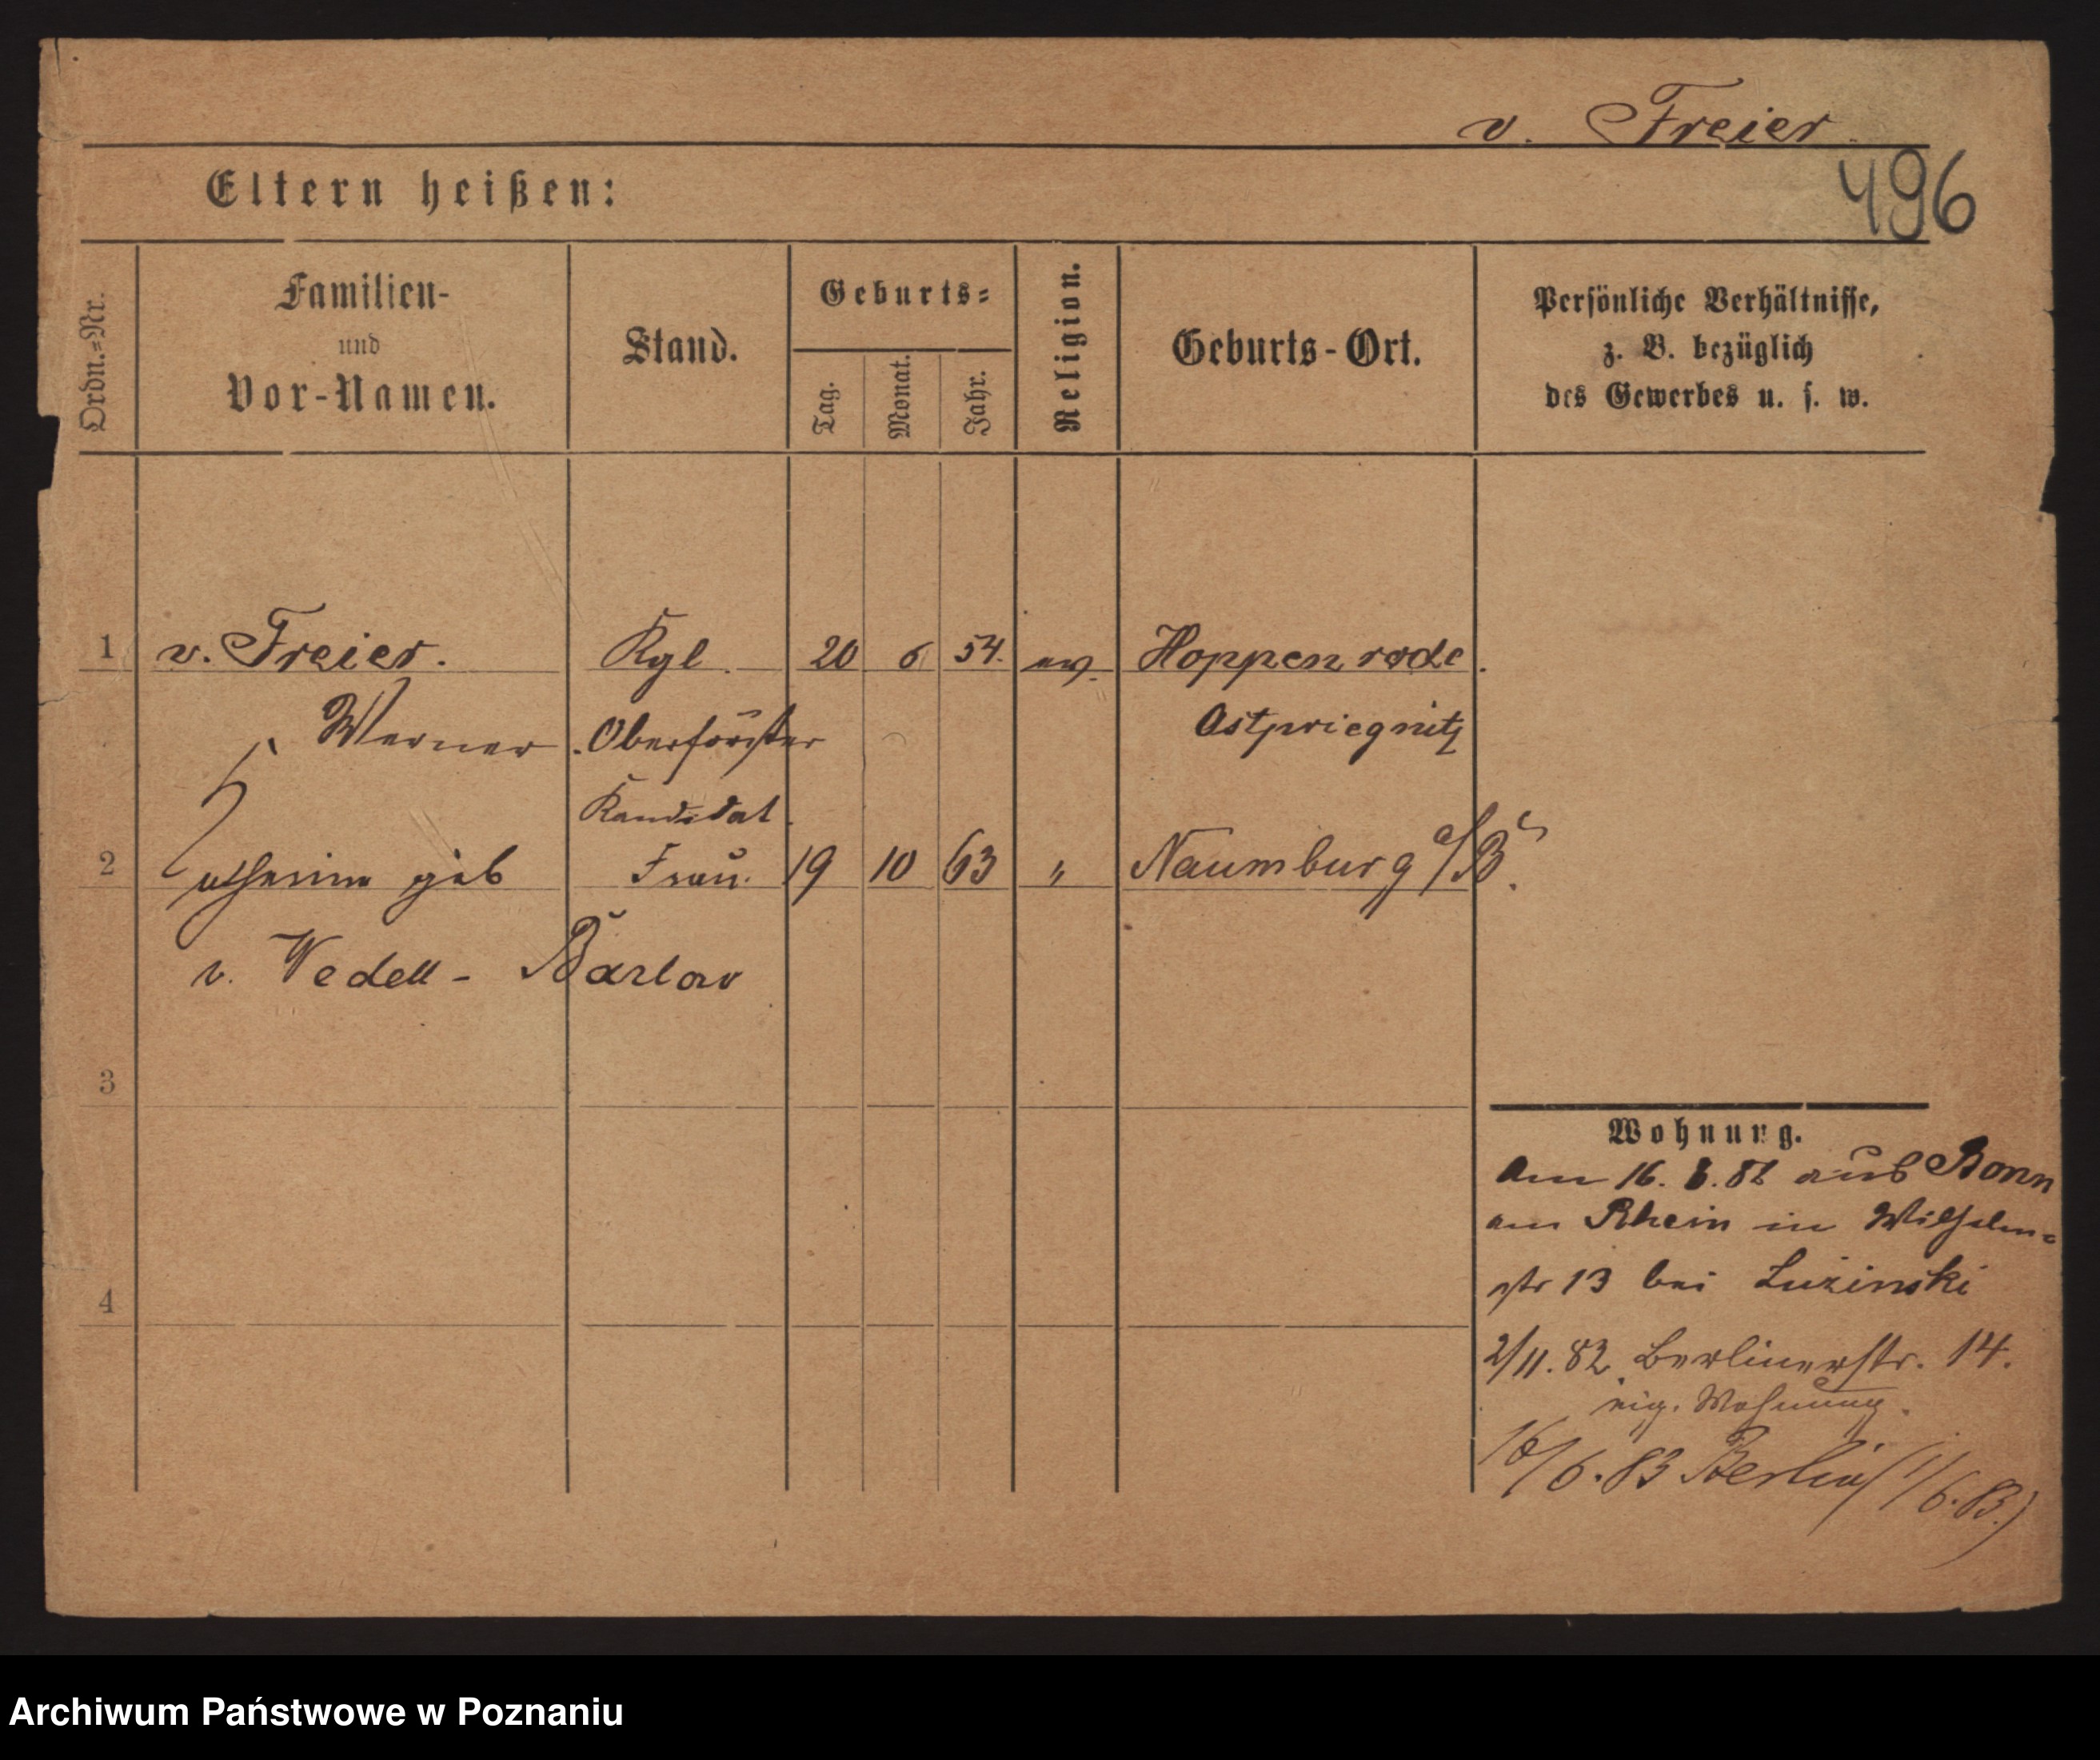 v. Freier.
496
Eltern heißen:
Ordn.=Nr.
Familien-
und
Vor-Namen.
Stand.
Geburts=
Tag.
Monat.
Jahr.
Religion.
Geburts-Ort.
Persönliche Verhältnisse,
z. B. bezüglich
des Gewerbes u. s. w.
1 v. Freier. Kgl. 20 6 54. ev. Hoppenrade.
Werner Oberförster Ostpriegnitz
Kandidat.
2 Catherine geb Frau. 19 10 63 " Naumburg a/B.
v. Wedell - Parlow
3
4
Wohnung.
Am 16. 8. 82 aus Bonn
am Rhein in Wilhelm=
str 13 bei Luzinski
2/11. 82 Berlinerstr. 14.
eig. Wohnung.
16/6. 83 Berlin (1/6. 83.)
Archiwum Państwowe w Poznaniu